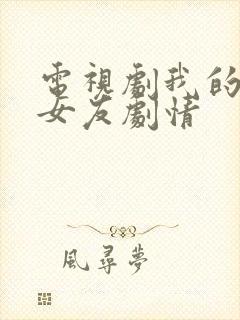 電視劇我的
女友劇情
風尋夢